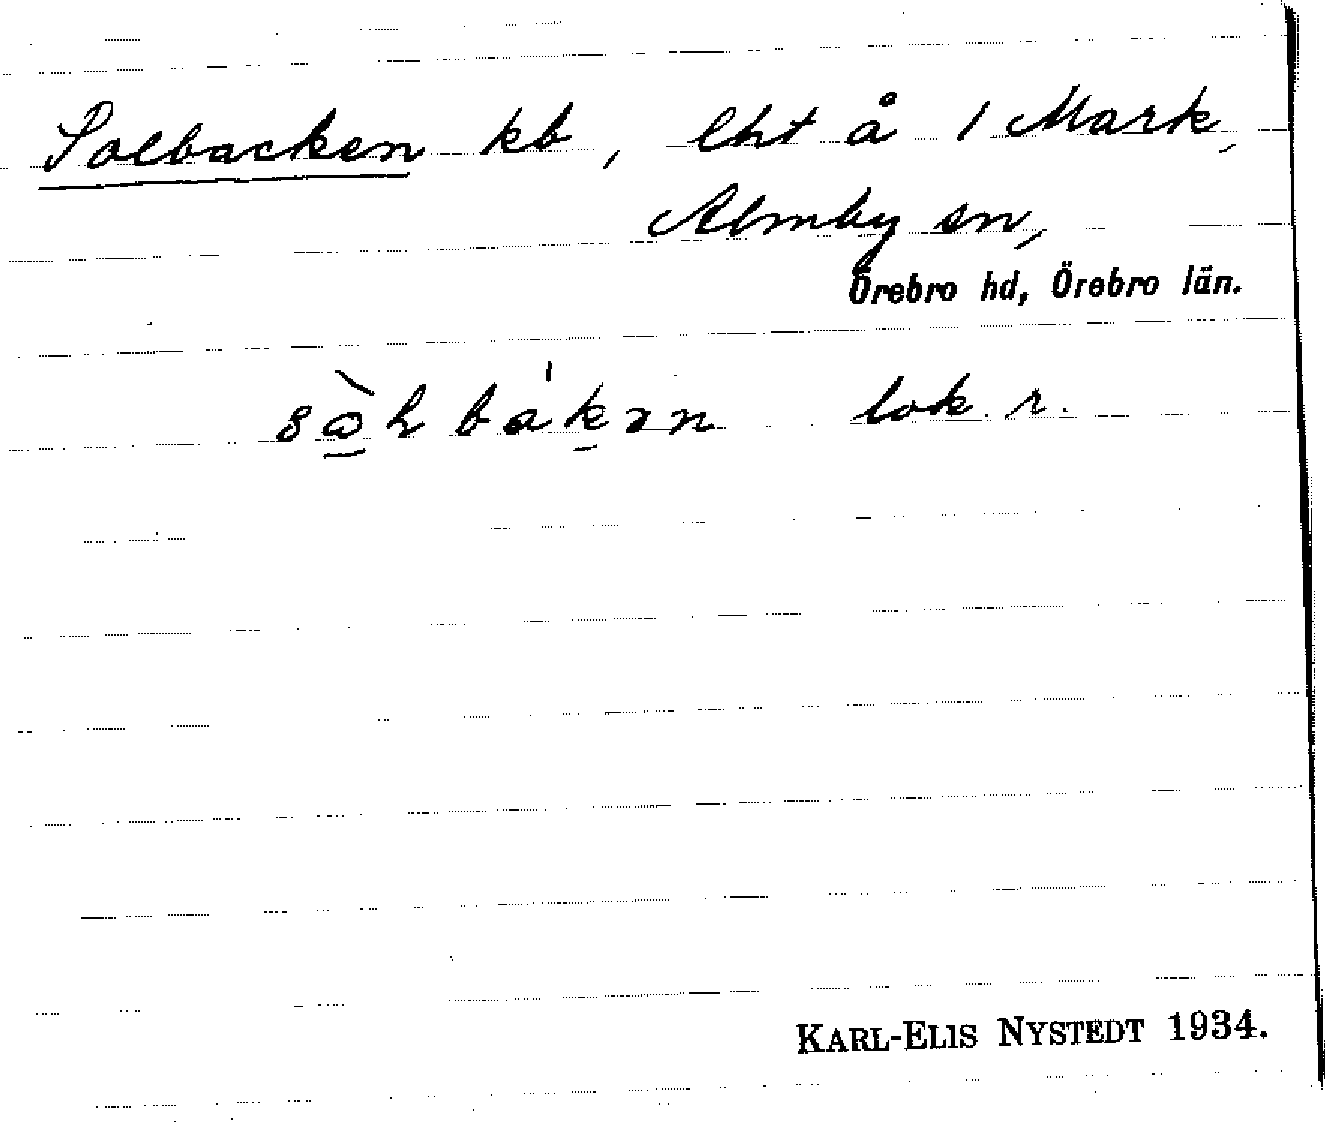 Solbacken kb, lht å 1 Mark,
Almby sn,
Örebro hd, Örebro län.
lok. r.
KARL-ELIS NYSTEDT 1934.